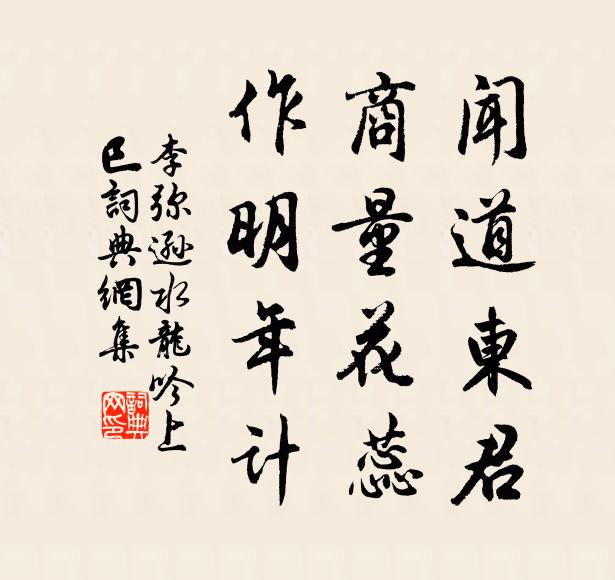 闻道東君
商量花蕊
作明年计
李弥逊水龍吟上
巳詞典網集
詞典
网印